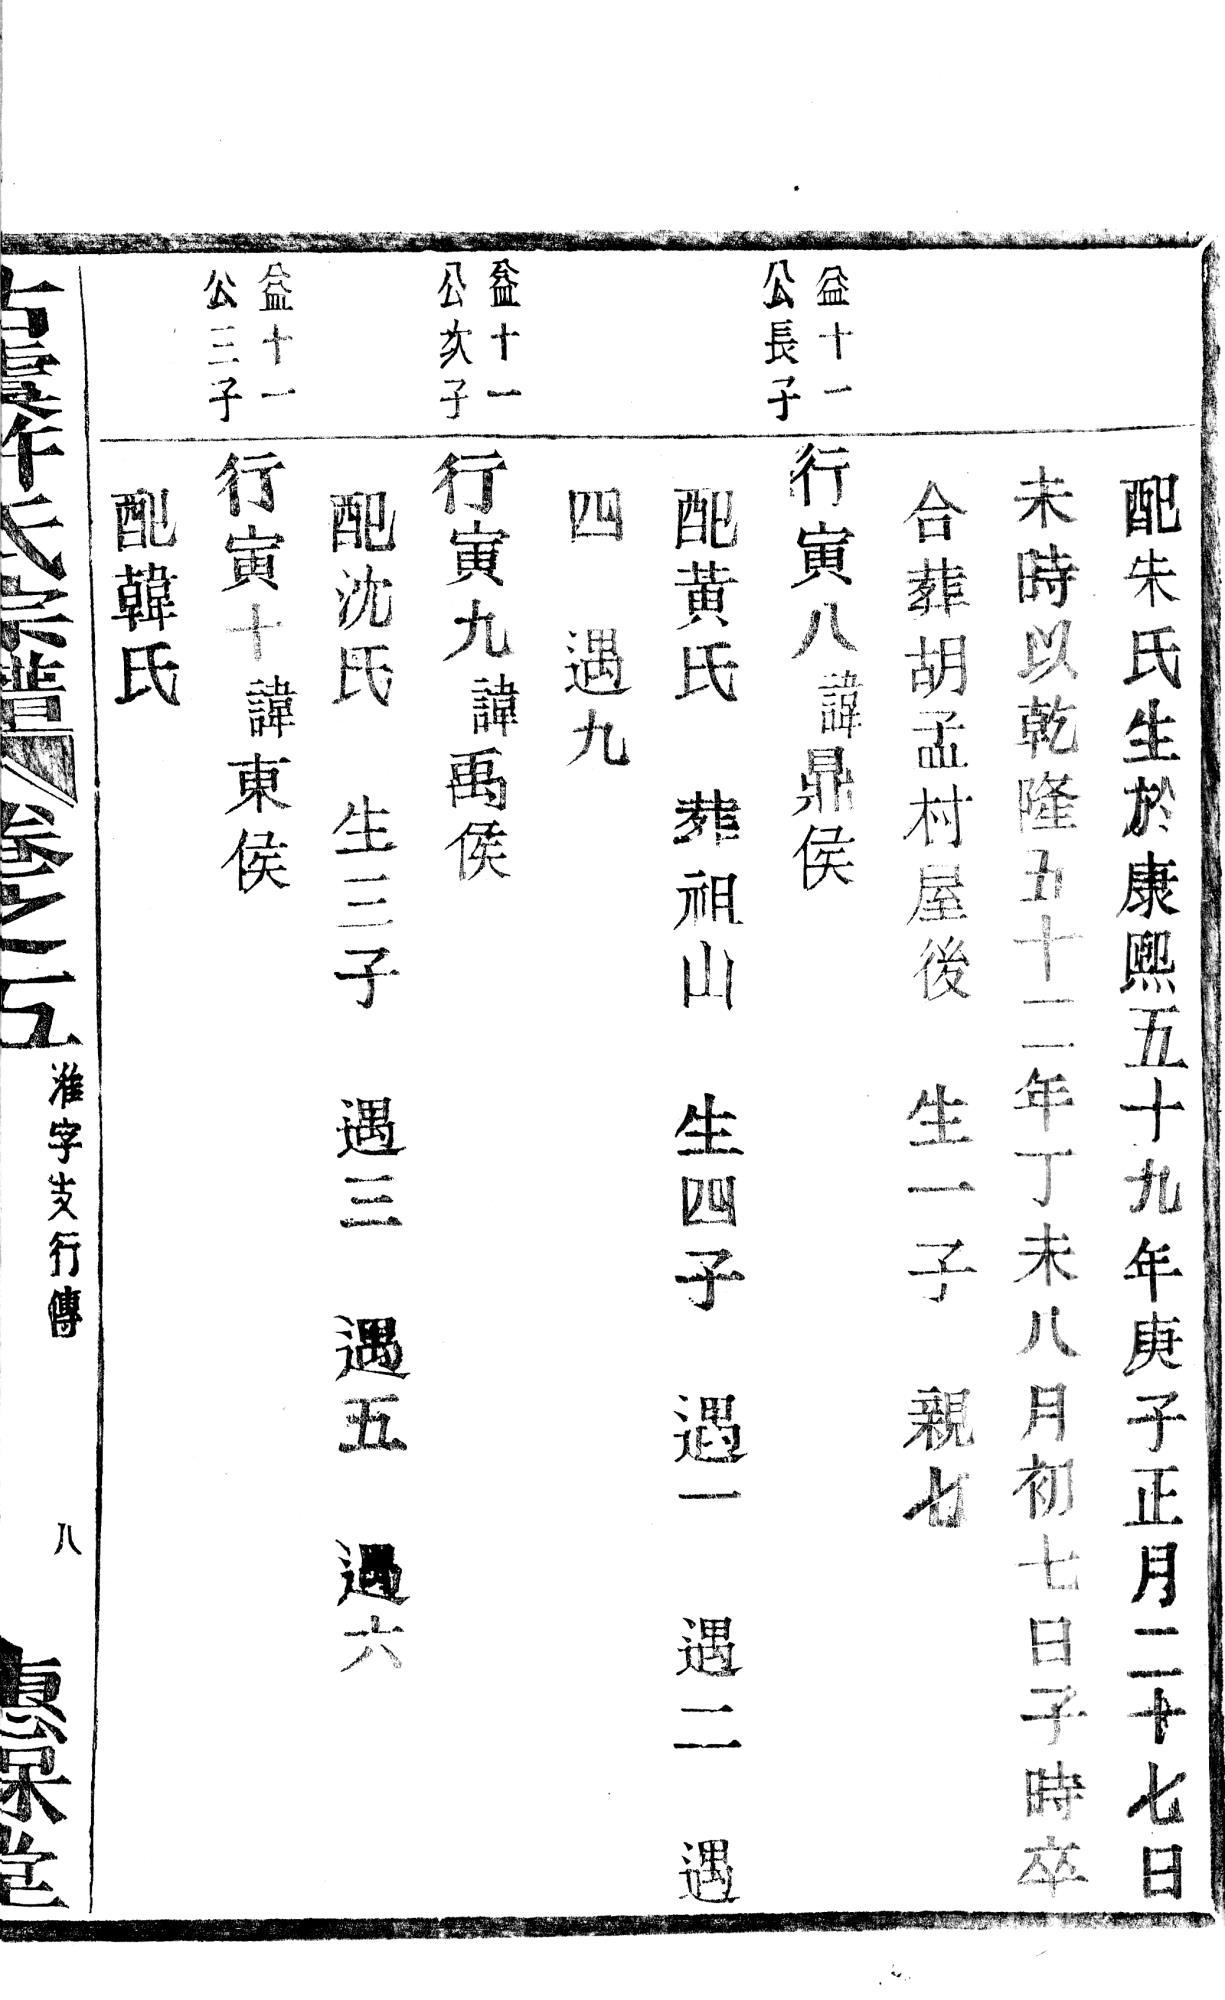 配朱氏生於康熙五十九年庚子正月二十七日
未時以乾隆五十二年丁未八月初七日子時卒
合葬胡孟村屋後　生一子　親七
益十一
公長子
行寅八諱鼎侯
配黃氏　葬祖山　生四子　遇一　遇二　遇
四　遇九
益十一
公次子
行寅九諱禹侯
配沈氏　生三子　遇三　遇五　遇六
益十一
公三子
行寅十諱東侯
配韓氏
氏宗譜　卷之五
淮字支行傳
八
堂